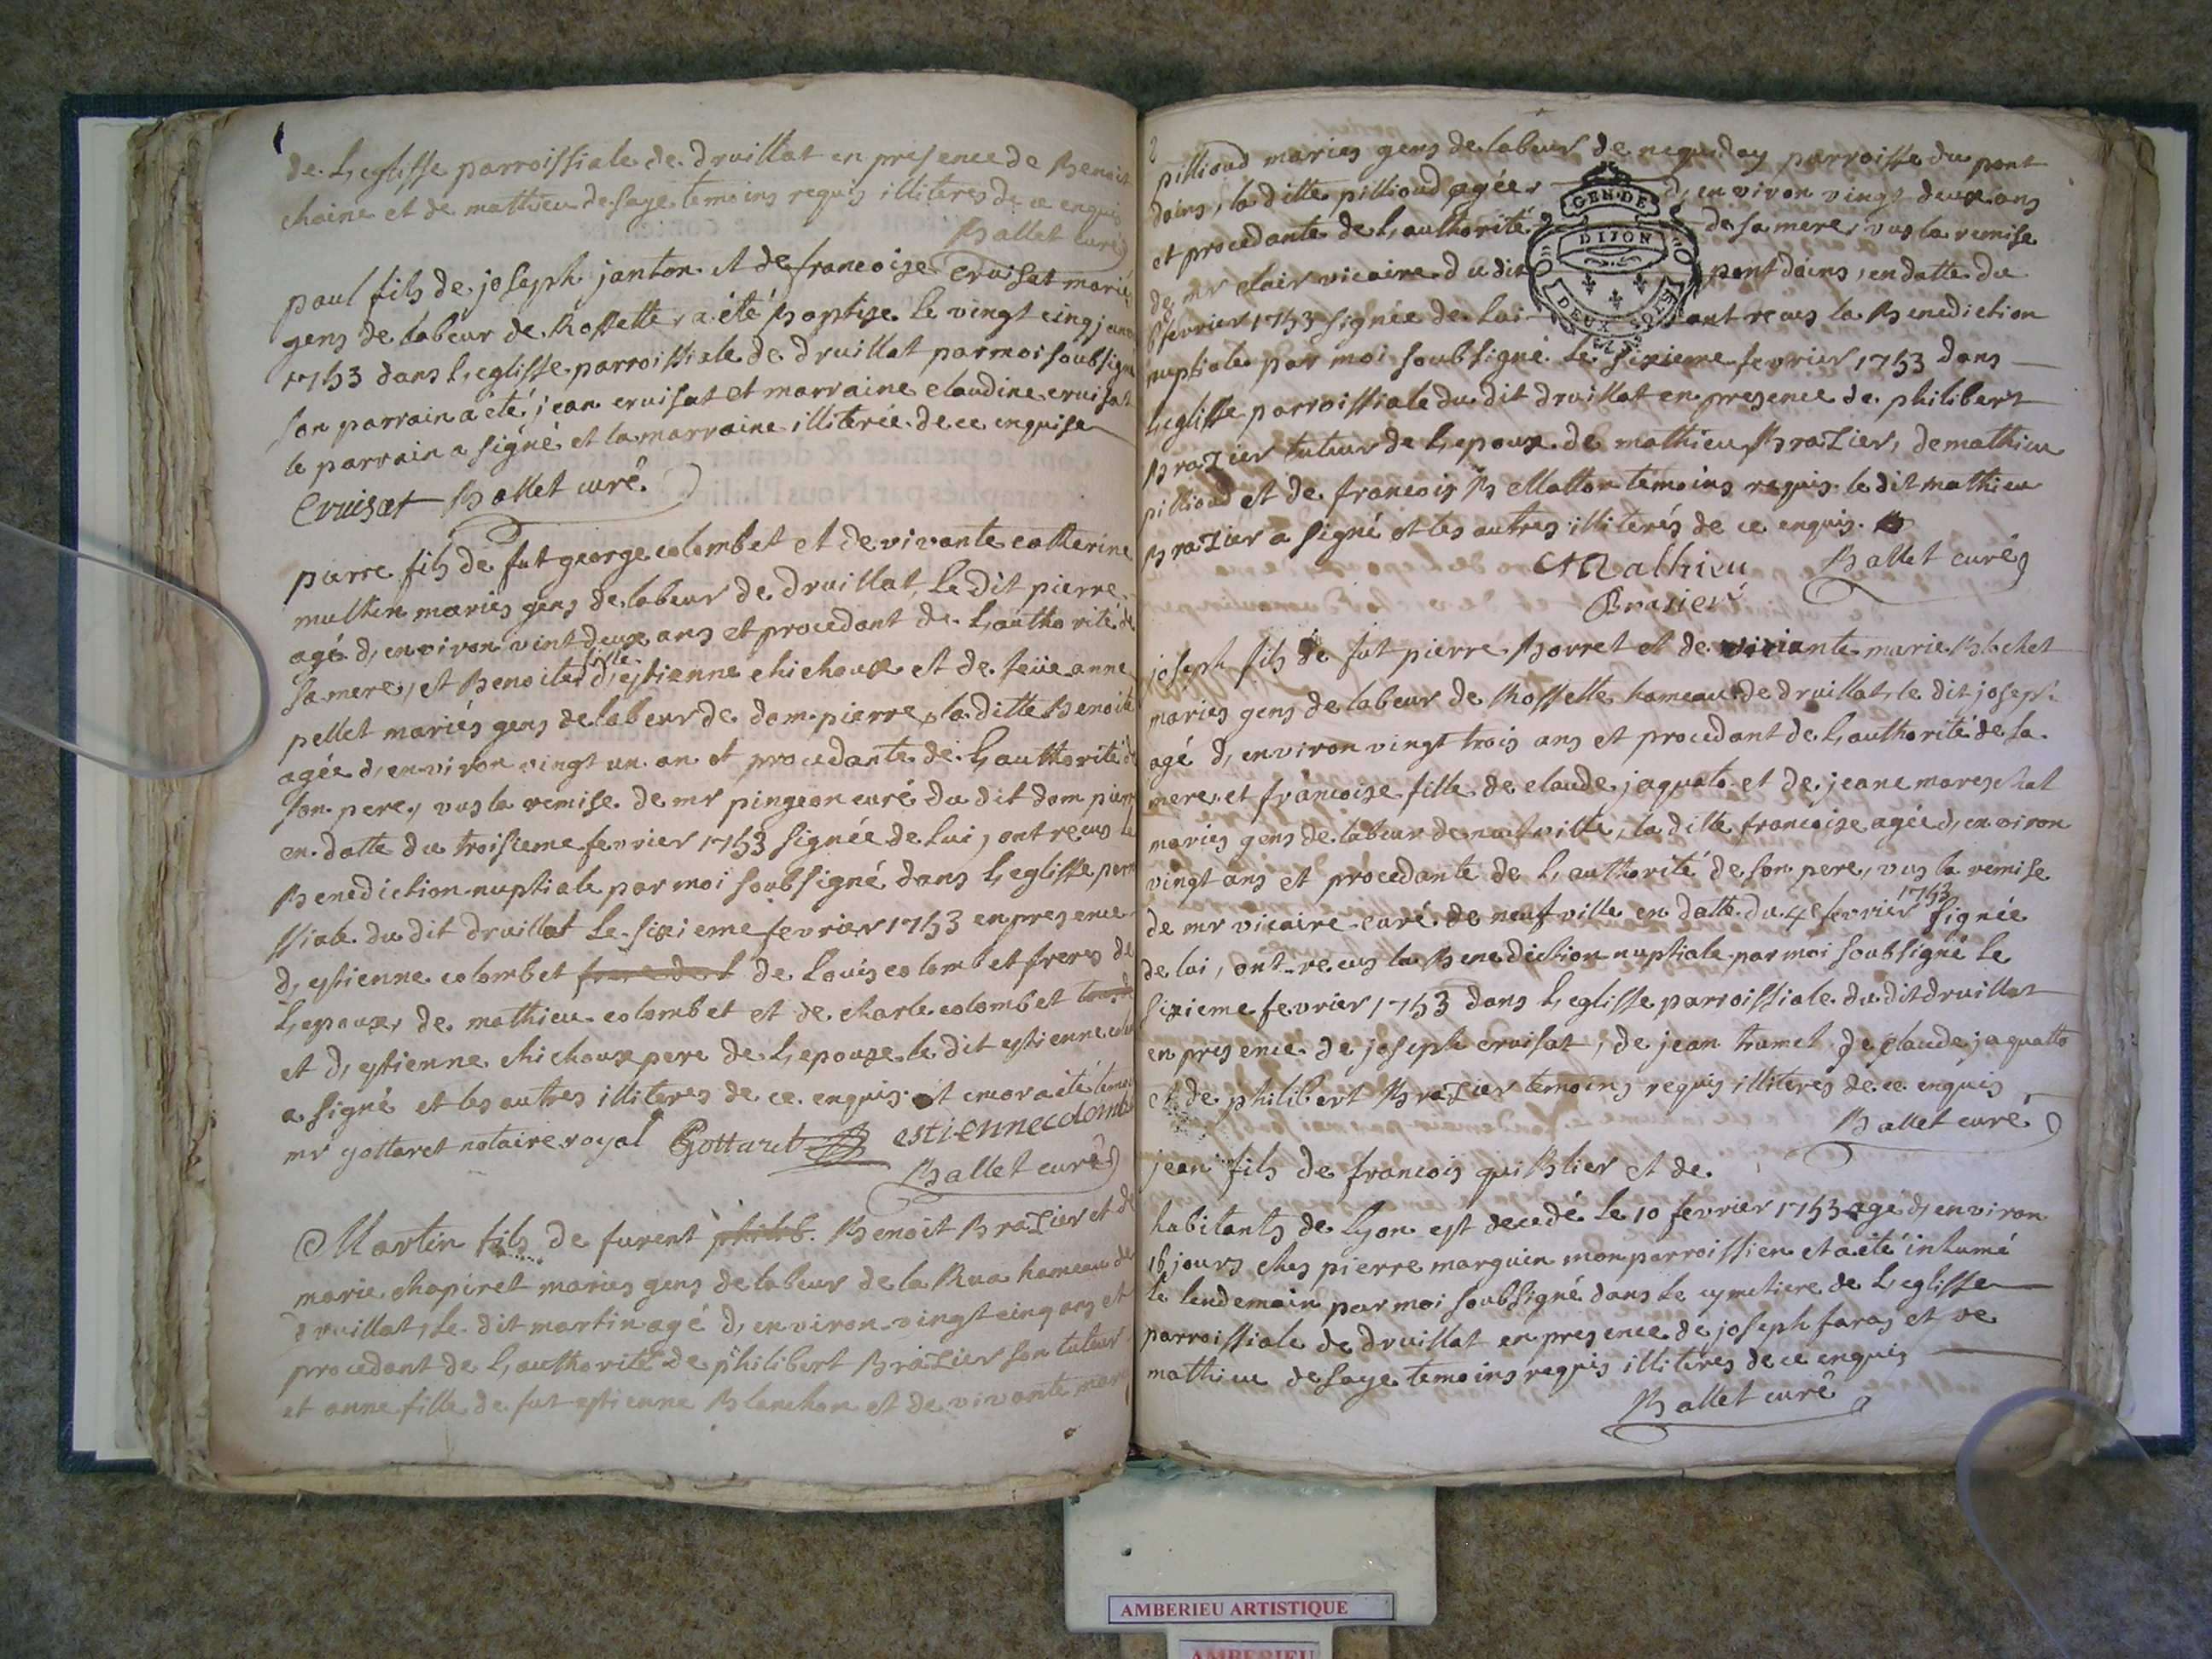 de L,eglisse parroissiale de druillat en presence de Benoit
chaine et de mathieu de saye temoins requis illiteres de ce enquis
Ballet curé
paul fils de joseph janton et de francoise cruisat mariés
gens de labeur de Rossette, a été baptize le vingt cinq janv
1753 dans l,eglisse parroissiale de druillat par moi soubsigné
son parrain a été jean cruisat et marraine claudine cruisat
le parrain a signé et la marraine illiterée de ce enquise
Cruisat Ballet curé
pierre fils de fut george colombet et de vivante catherine
multin mariés gens de labeur de druillat, le dit pierre
agé d,environ vint deux ans et procedant de L,authorité de
sa mere, et Benoite fille d,estienne chichoux et de feüe anne
pellet mariés gens de labeur de dom pierre, la ditte Benoite
agée d,environ vingt un an et procedante de L,authorité de
son pere, vus la remise de mr pingeon curé du dit dom pierre
en datte du troisieme fevrier 1753 signée de lui, ont recus la
Benediction nuptiale par moi soubsigné dans l,eglisse parroi
ssiale du dit druillat le sixieme fevrier 1753 en presence
d,estienne colombet de Louis colombet freres de
L,epoux, de mathieu colombet et de charle colombet
et d,estienne chichoux pere de L,epouze le dit estienne colom
a signé et les autres illiteres de ce enquis et encor a été temoi
mr gottaret notaire royal Gottaret estienne colombe
Ballet curé
Martin fils de furent philib. Benoit Brazier et de
marie chapiret mariés gens de labeur de la Rua hameau de
druillat, le dit martin agé d,environ vingt cinq ans et
procedant de L,authorité de philibert Brazier son tuteur
et anne fille de fut estienne Blanchon et de vivante marie
pillioud mariés gens de labeur de neguiday parroisse du pont
dains, la ditte pillioud agée d,environ vingt deux ans
et procedante de L,authorité de sa mere, vus la remise
de mr clair vicaire du dit pont dains, en datte du
GEN DE
DIJON
DEUX SOLS
fevrier 1753 signée de lui ont recus la Benediction
nuptiale par moi soubsigné le sixieme fevrier 1753 dans
L,eglisse parroissiale du dit druillat en presence de philibert
Brazier tuteur de L,epoux de mathieu Brazier, de mathieu
pillioud et de francois Bellatton temoins requis le dit mathieu
Brazier a signé et les autres illiterés de ce enquis.
Mathieu Ballet curé
Brasier
joseph fils de fut pierre Borret et de vivante marie Blechet
mariés gens de labeur de Rossette hameau de druillat, le dit joseph
agé d,environ vingt trois ans et procedant de L,authorité de sa
mere, et francoise fille de claude jaquato et de jeane mareschal
mariés gens de labeur de neufville, la ditte francoise agée d,environ
vingt ans et procedante de L,authorité de son pere, vus la remise
de mr vicaire curé de neufville en datte du 4e fevrier 1753 signée
de lui, ont recus la Benediction nuptiale par moi soubsigné le
sixieme fevrier 1753 dans L,eglisse parroissiale du dit druillat
en presence de joseph cruisat, de jean tramet de claude jaquatto
et de philibert Brazier temoins requis illiteres de ce enquis
Ballet curé
jean fils de francois quiblier et de
habitants de Lyon est decedé le 10 fevrier 1753 agé d,environ
16 jours ches pierre marguin mon parroissien et a été inhumé
le lendemain par moi soubsigné dans le cymetiere de L,eglisse
parroissiale de druillat en presence de joseph faras et de
mathieu de saye temoins requis illiteres de ce enquis
Ballet curé
AMBERIEU ARTISTIQUE
AMBERIEU